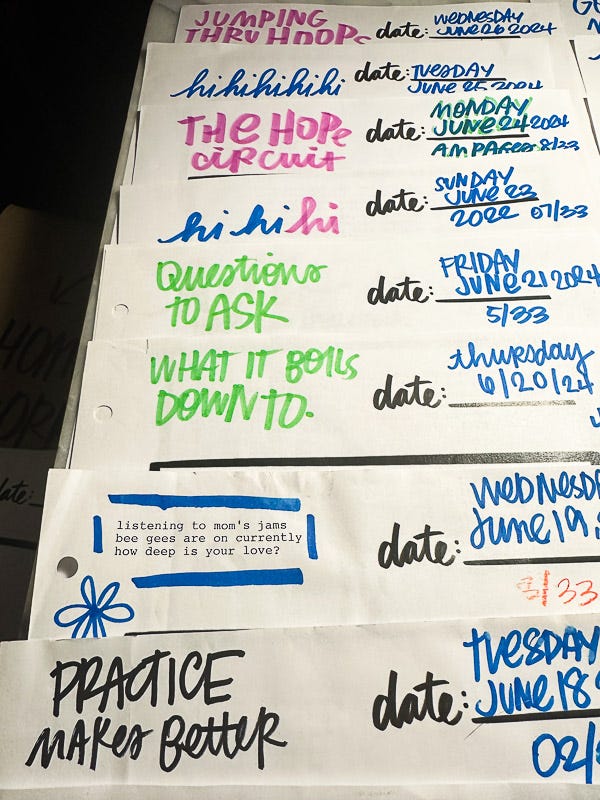 JUMPING
THRU HOOPS
date:
WEDNESDAY
JUNE 26 2024
hihihihihihi
date:
TUESDAY
JUNE 25 2024
THE HOPE
CIRCUIT
date:
MONDAY
JUNE 24 2024
AM PAGES 8/33
hi hi hi
date:
SUNDAY
JUNE 23
2022 07/33
Questions
TO ASK
date:
FRIDAY
JUNE 21 2024
5/33
WHAT IT BOILS
DOWN TO.
date:
thursday
6/20/24
listening to mom's jams
bee gees are on currently
how deep is your love?
date:
WEDNESD
June 19
3/33
PRACTICE
MAKES BETTER
date:
TUESDAY
JUNE 18
02/
date: